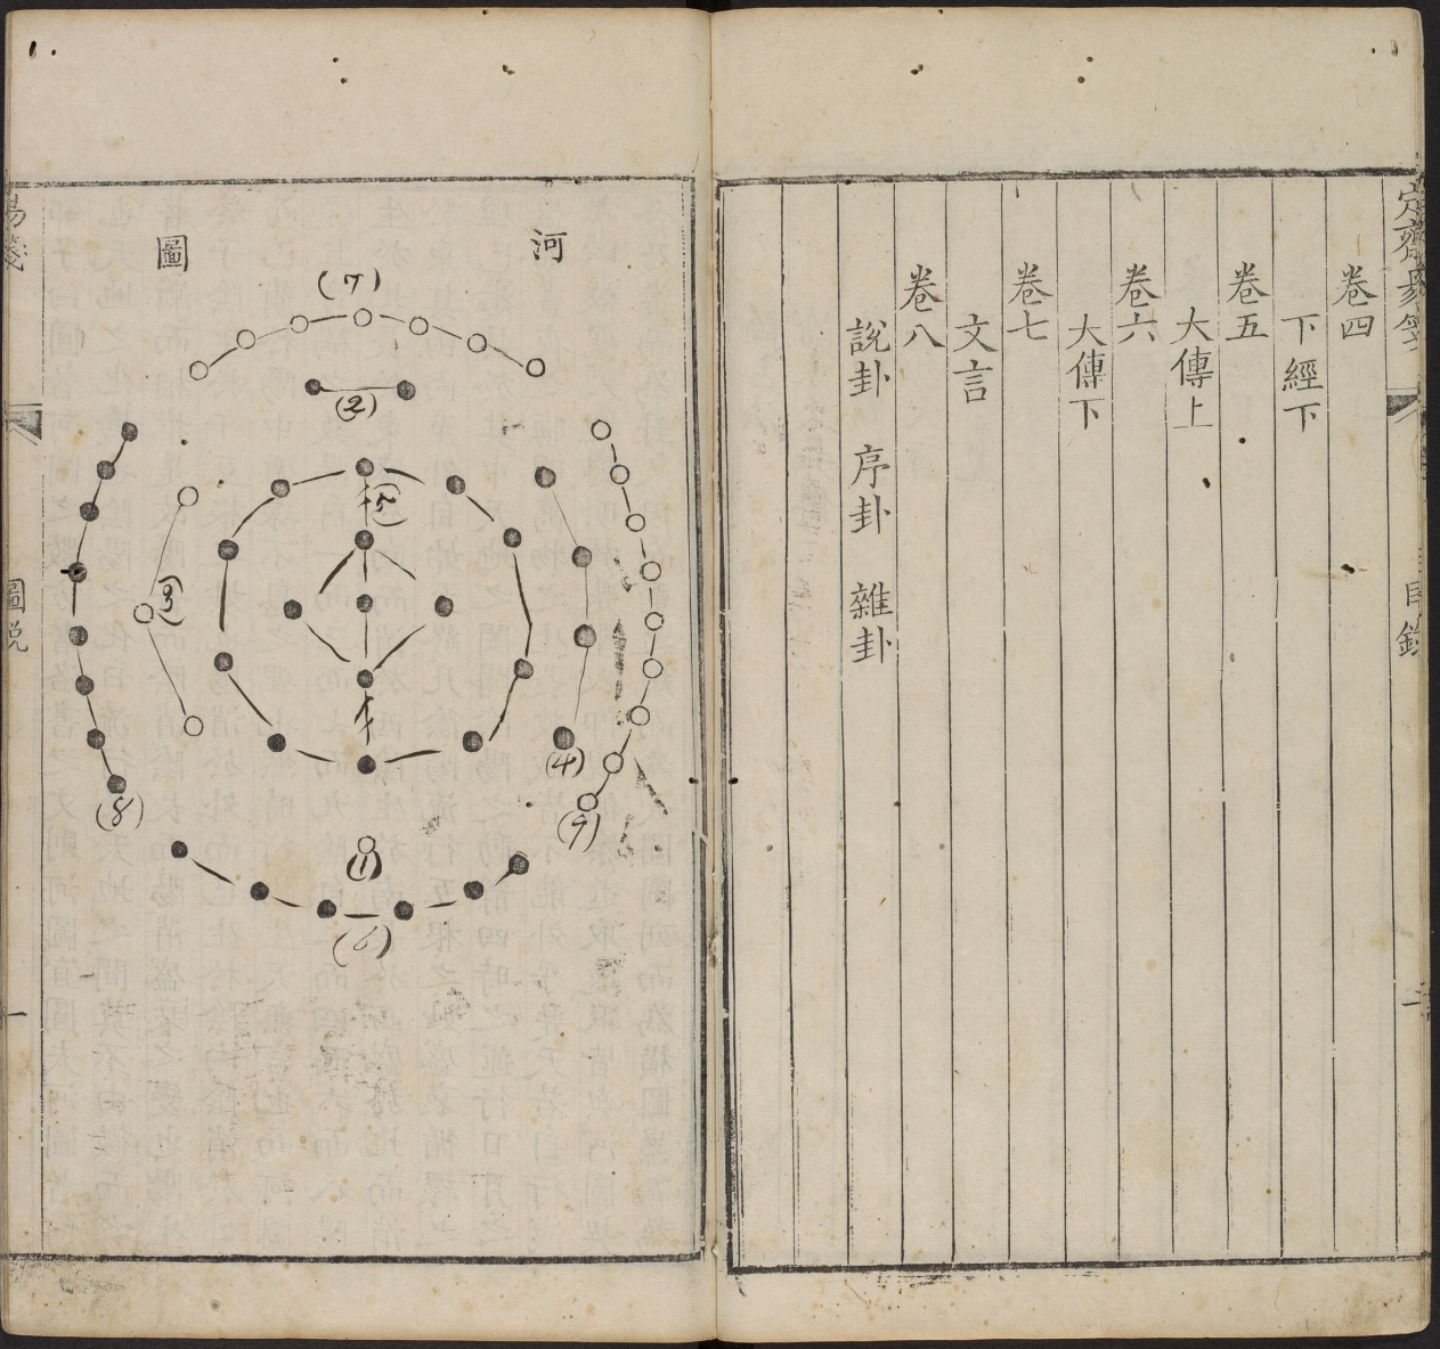 卷四
下經下
卷五
大傳上
卷六
大傳下
卷七
文言
卷八
說卦 序卦 雜卦
目錄
二
河 圖
(7)
(2)
(5)
(3)
(4)
(8)
(9)
(1)
(6)
圖說
一